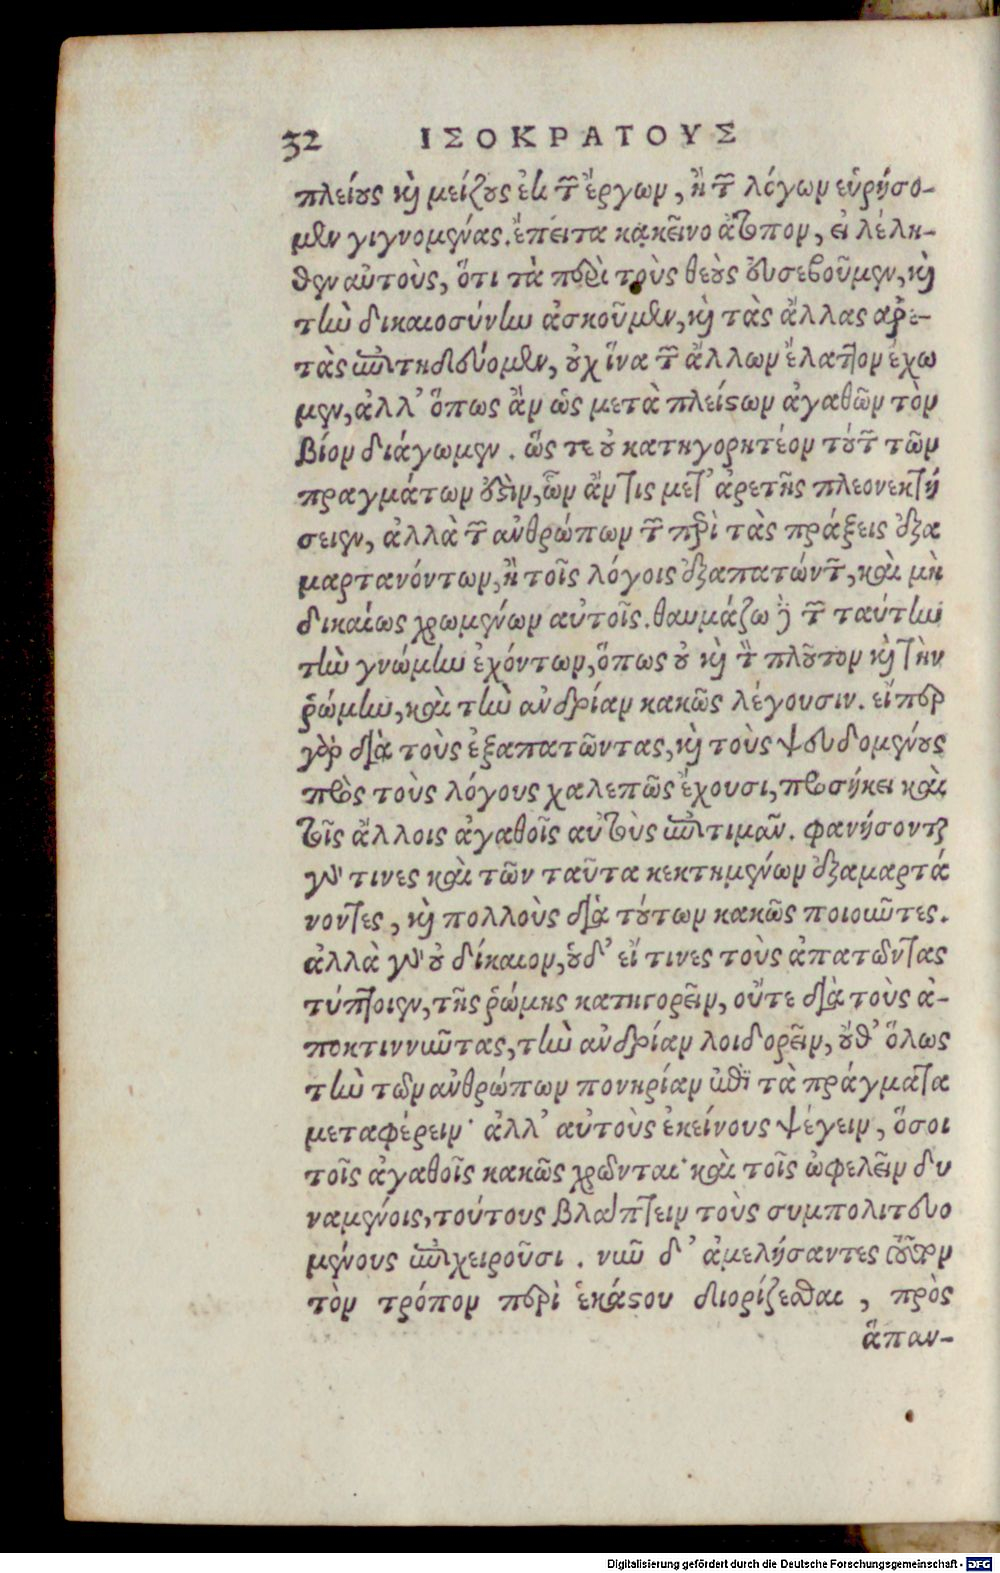 32 ΙΣΟΚΡΑΤΟΥΣ
πλείους καὶ μείζους ἐκ τῶν ἔργων, ἢ τῶν λόγων εὑρήσο-
μεν γιγνομένας. ἔπειτα κἀκεῖνο ἄτοπον, εἰ λέλη-
θεν αὐτοὺς, ὅτι τὰ περὶ τοὺς θεοὺς εὐσεβοῦμεν, καὶ
τὴν δικαιοσύνην ἀσκοῦμεν, καὶ τὰς ἄλλας ἀρε-
τὰς ἐπιτηδεύομεν, οὐχ ἵνα τῶν ἄλλων ἔλαττον ἔχω
μεν, ἀλλ' ὅπως ἂν ὡς μετὰ πλείστων ἀγαθῶν τὸν
βίον διάγωμεν. ὥς τε οὐ κατηγορητέον τούτων τῶν
πραγμάτων οὐδὲν, ὧν ἄν τις μετ' ἀρετῆς πλεονεκτή
σειεν, ἀλλὰ τῶν ἀνθρώπων τῶν περὶ τὰς πράξεις ἐξα
μαρτανόντων, ἢ τοῖς λόγοις ἐξαπατώντων, καὶ μὴ
δικαίως χρωμένων αὐτοῖς. θαυμάζω δὲ τῶν ταύτην
τὴν γνώμην ἐχόντων, ὅπως οὐ καὶ τὸν πλοῦτον καὶ τὴν
ῥώμην, καὶ τὴν ἀνδρίαν κακῶς λέγουσιν. εἴπερ
γὰρ διὰ τοὺς ἐξαπατῶντας, καὶ τοὺς ψευδομένους
πρὸς τοὺς λόγους χαλεπῶς ἔχουσι, προσήκει καὶ
τοῖς ἄλλοις ἀγαθοῖς αὐτοὺς ἐπιτιμᾶν. φανήσονται
γάρ τινες καὶ τῶν ταῦτα κεκτημένων ἐξαμαρτά
νοντες, καὶ πολλοὺς διὰ τούτων κακῶς ποιοῦντες.
ἀλλὰ γὰρ οὐ δίκαιον, οὐδ' εἴ τινες τοὺς ἀπαντῶντας
τύπτοιεν, τῆς ῥώμης κατηγορεῖν, οὔτε διὰ τοὺς ἀ-
ποκτιννῦντας, τὴν ἀνδρίαν λοιδορεῖν, οὔθ' ὅλως
τὴν τῶν ἀνθρώπων πονηρίαν ἐπὶ τὰ πράγματα
μεταφέρειν· ἀλλ' αὐτοὺς ἐκείνους ψέγειν, ὅσοι
τοῖς ἀγαθοῖς κακῶς χρῶνται· καὶ τοῖς ὠφελεῖν δυ
ναμένοις, τούτους βλάπτειν τοὺς συμπολιτευο
μένους ἐπιχειροῦσι. νῦν δ' ἀμελήσαντες τοῦτον
τὸν τρόπον περὶ ἑκάστου διορίζεσθαι, πρὸς
ἅπαν-
Digitalisierung gefördert durch die Deutsche Forschungsgemeinschaft - DFG